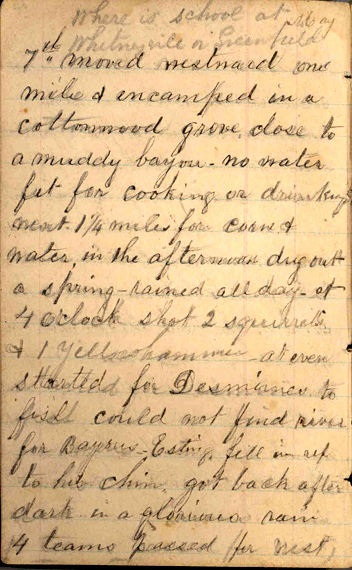 Where is school at
Whitneyville or Greenfield
7th moved westward one
mile & encamped in a
cottonwood grove, close to
a muddy bayou - no water
fit for cooking or drinking
went 1¼ miles for corn &
water, in the afternoon dug out
a spring - rained all day - at
4 oclock shot 2 squirrels
& 1 Yellowhammer - at even
startedd for Desmoines to
fish could not find river
for Bayous - fell in up
to his chin, got back after
dark in a glorious rain
4 teams passed for west,